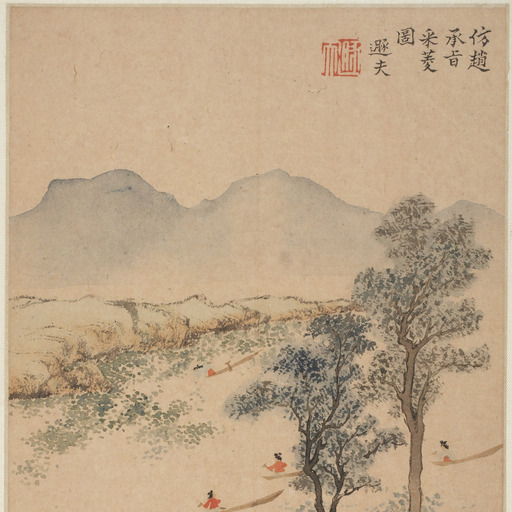 仿趙
承旨
采菱
圖
遯夫